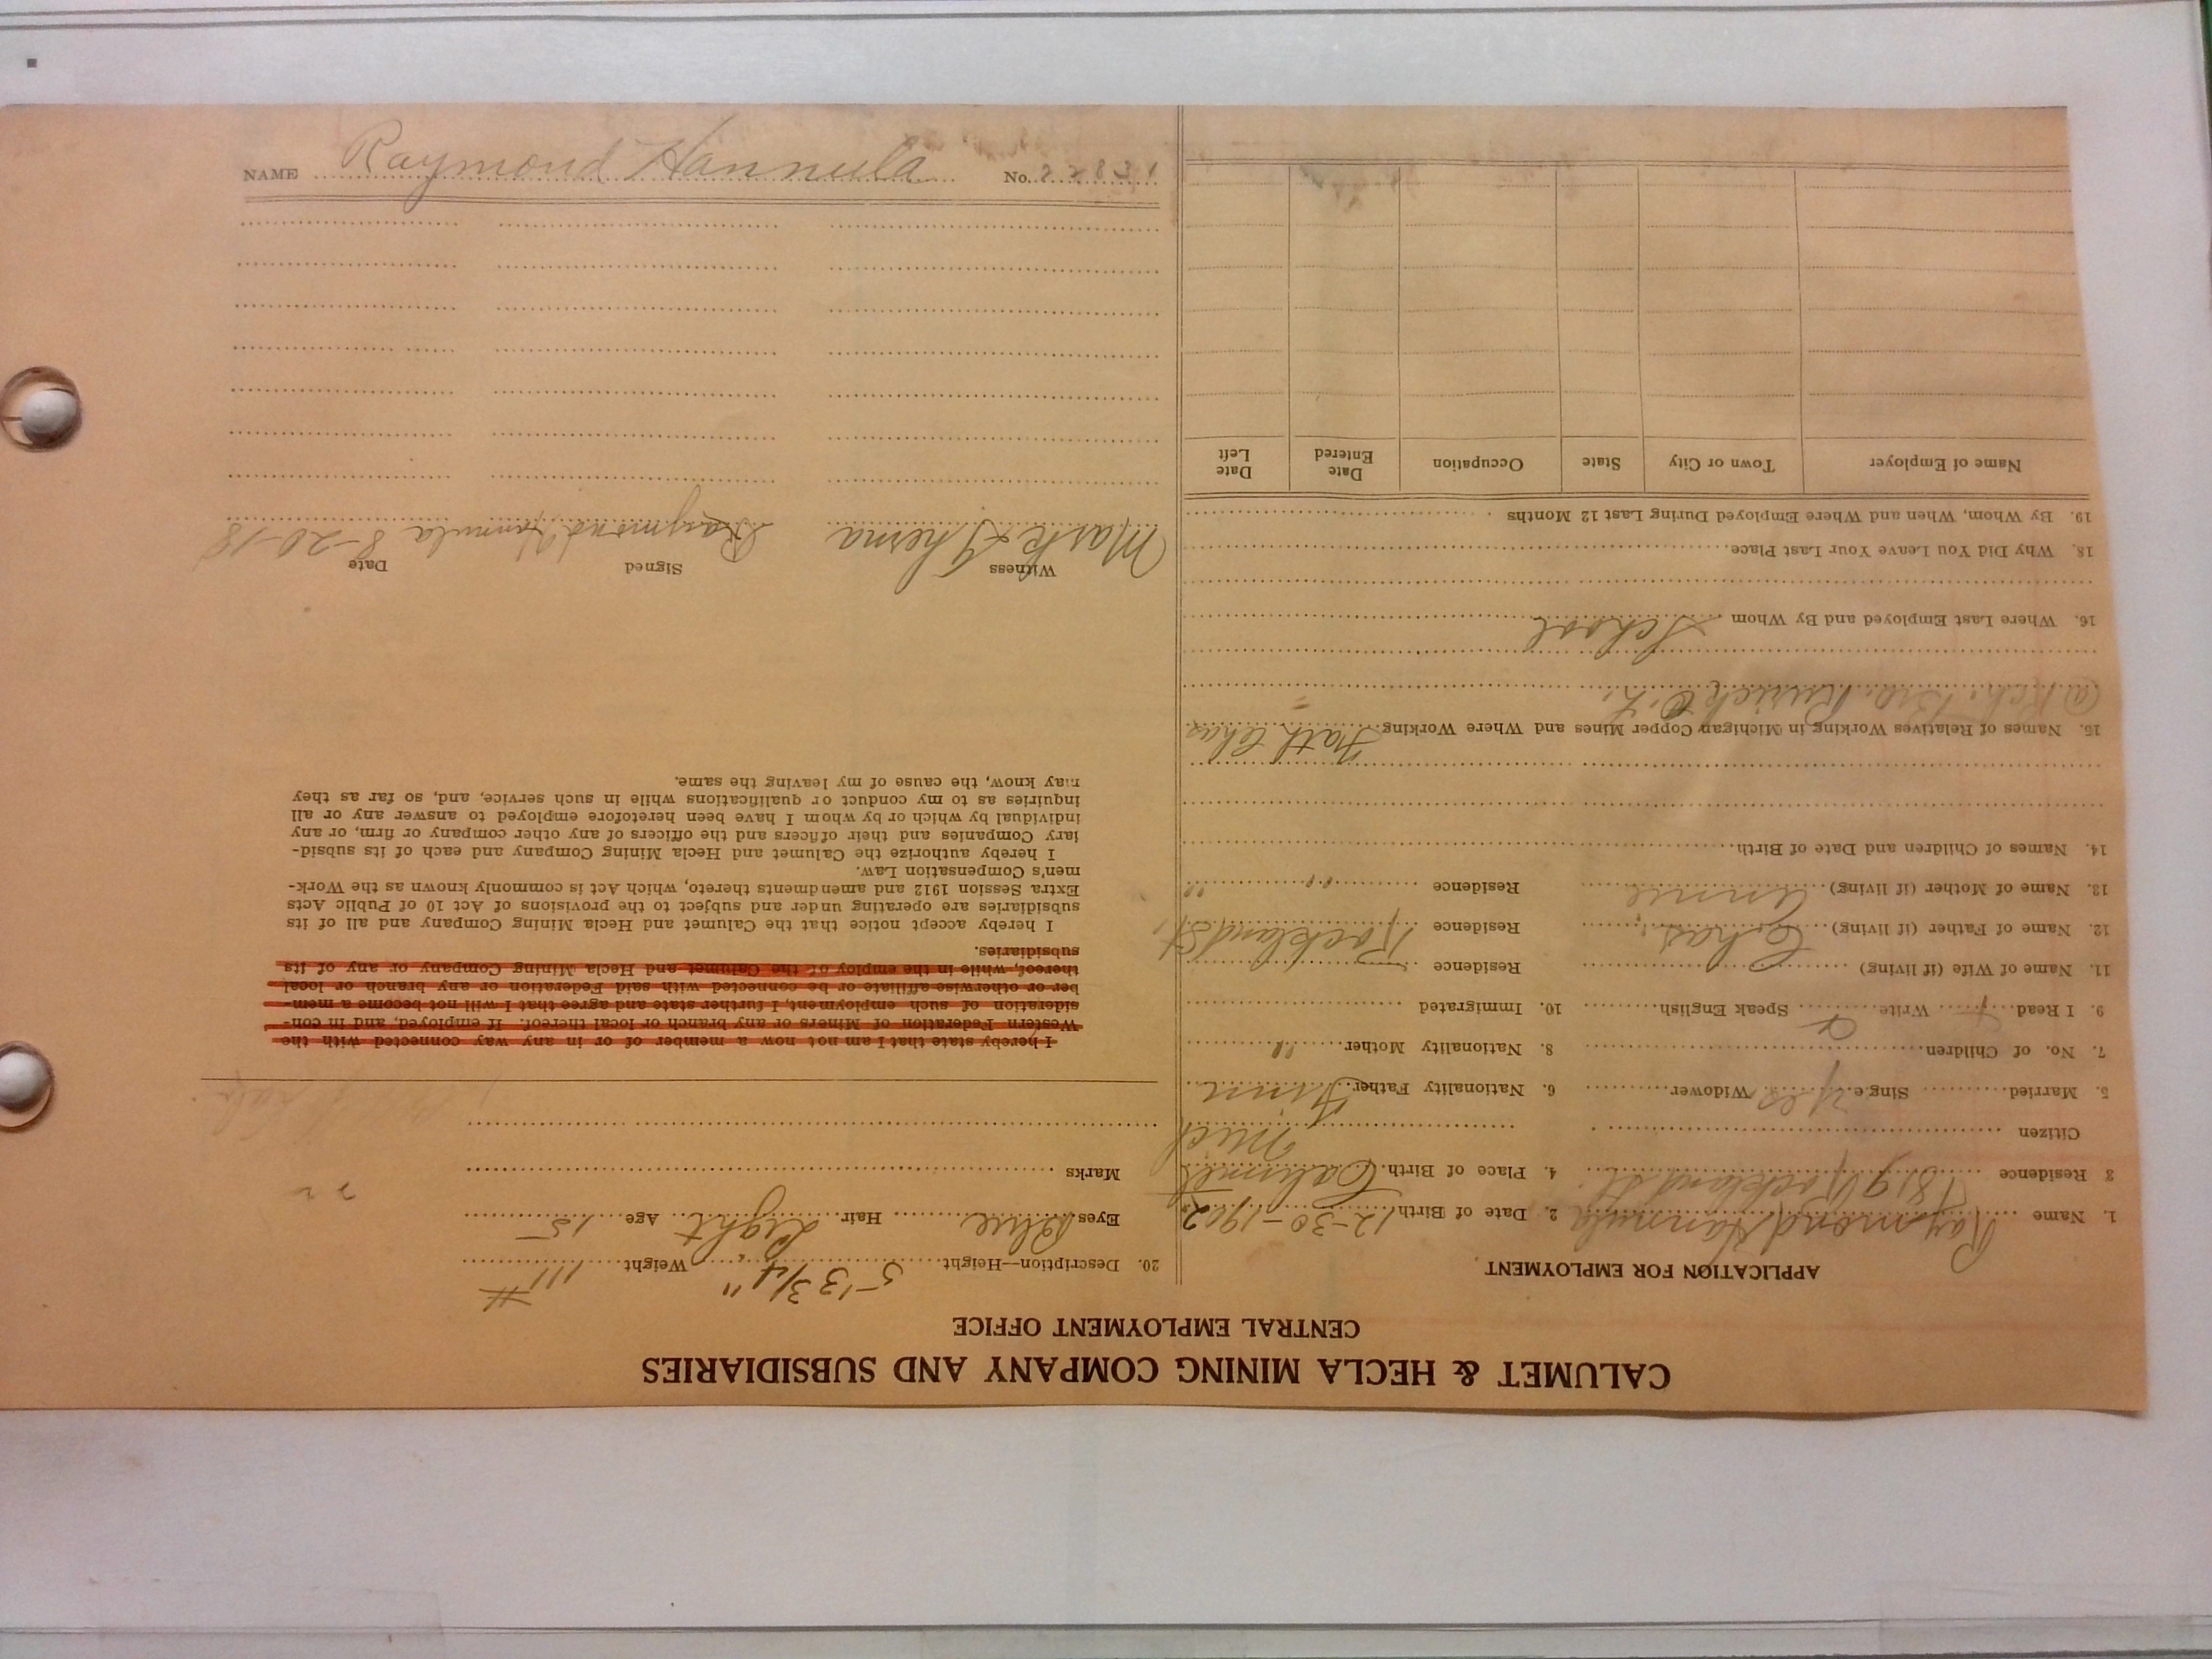 CALUMET & HECLA MINING COMPANY AND SUBSIDIARIES
CENTRAL EMPLOYMENT OFFICE
APPLICATION FOR EMPLOYMENT
1. Name Raymond Hannula 2. Date of Birth 12-30-1902
3 Residence 819 Rockland St. 4. Place of Birth Calumet
Mich
Citizen
5. Married Single yes Widower 6. Nationality Father Finn
7. No. of Children 8. Nationality Mother "
9. I Read Write Speak English 10. Immigrated
11. Name of Wife (if living) Residence
12. Name of Father (if living) Chas Residence Rockland St.
13. Name of Mother (if living) Annie Residence " "
14. Names of Children and Date of Birth
15. Names of Relatives Working in Michigan Copper Mines and Where Working Fath Chas
16. Where Last Employed and By Whom School
18. Why Did You Leave Your Last Place
19. By Whom, When and Where Employed During Last 12 Months
Name of Employer Town or City State Occupation Date Entered Date Left
20. Description—Height 5-'3 3/4" Weight 111 #
Eyes Blue Hair Light Age 15
Marks
I hereby state that I am not now a member of or in any way connected with the
Western Federation of Miners or any branch or local thereof. If employed, and in con-
sideration of such employment, I further state and agree that I will not become a mem-
ber or otherwise affiliate or be connected with said Federation or any branch or local
thereof, while in the employ of the Calumet and Hecla Mining Company or any of its
subsidiaries.
I hereby accept notice that the Calumet and Hecla Mining Company and all of its
subsidiaries are operating under and subject to the provisions of Act 10 of Public Acts
Extra Session 1912 and amendments thereto, which Act is commonly known as the Work-
men's Compensation Law.
I hereby authorize the Calumet and Hecla Mining Company and each of its subsid-
iary Companies and their officers and the officers of any other company or firm, or any
individual by which or by whom I have been heretofore employed to answer any or all
inquiries as to my conduct or qualifications while in such service, and, so far as they
may know, the cause of my leaving the same.
Witness Signed Date
Raymond Hannula 8-20-18
NAME Raymond Hannula No.